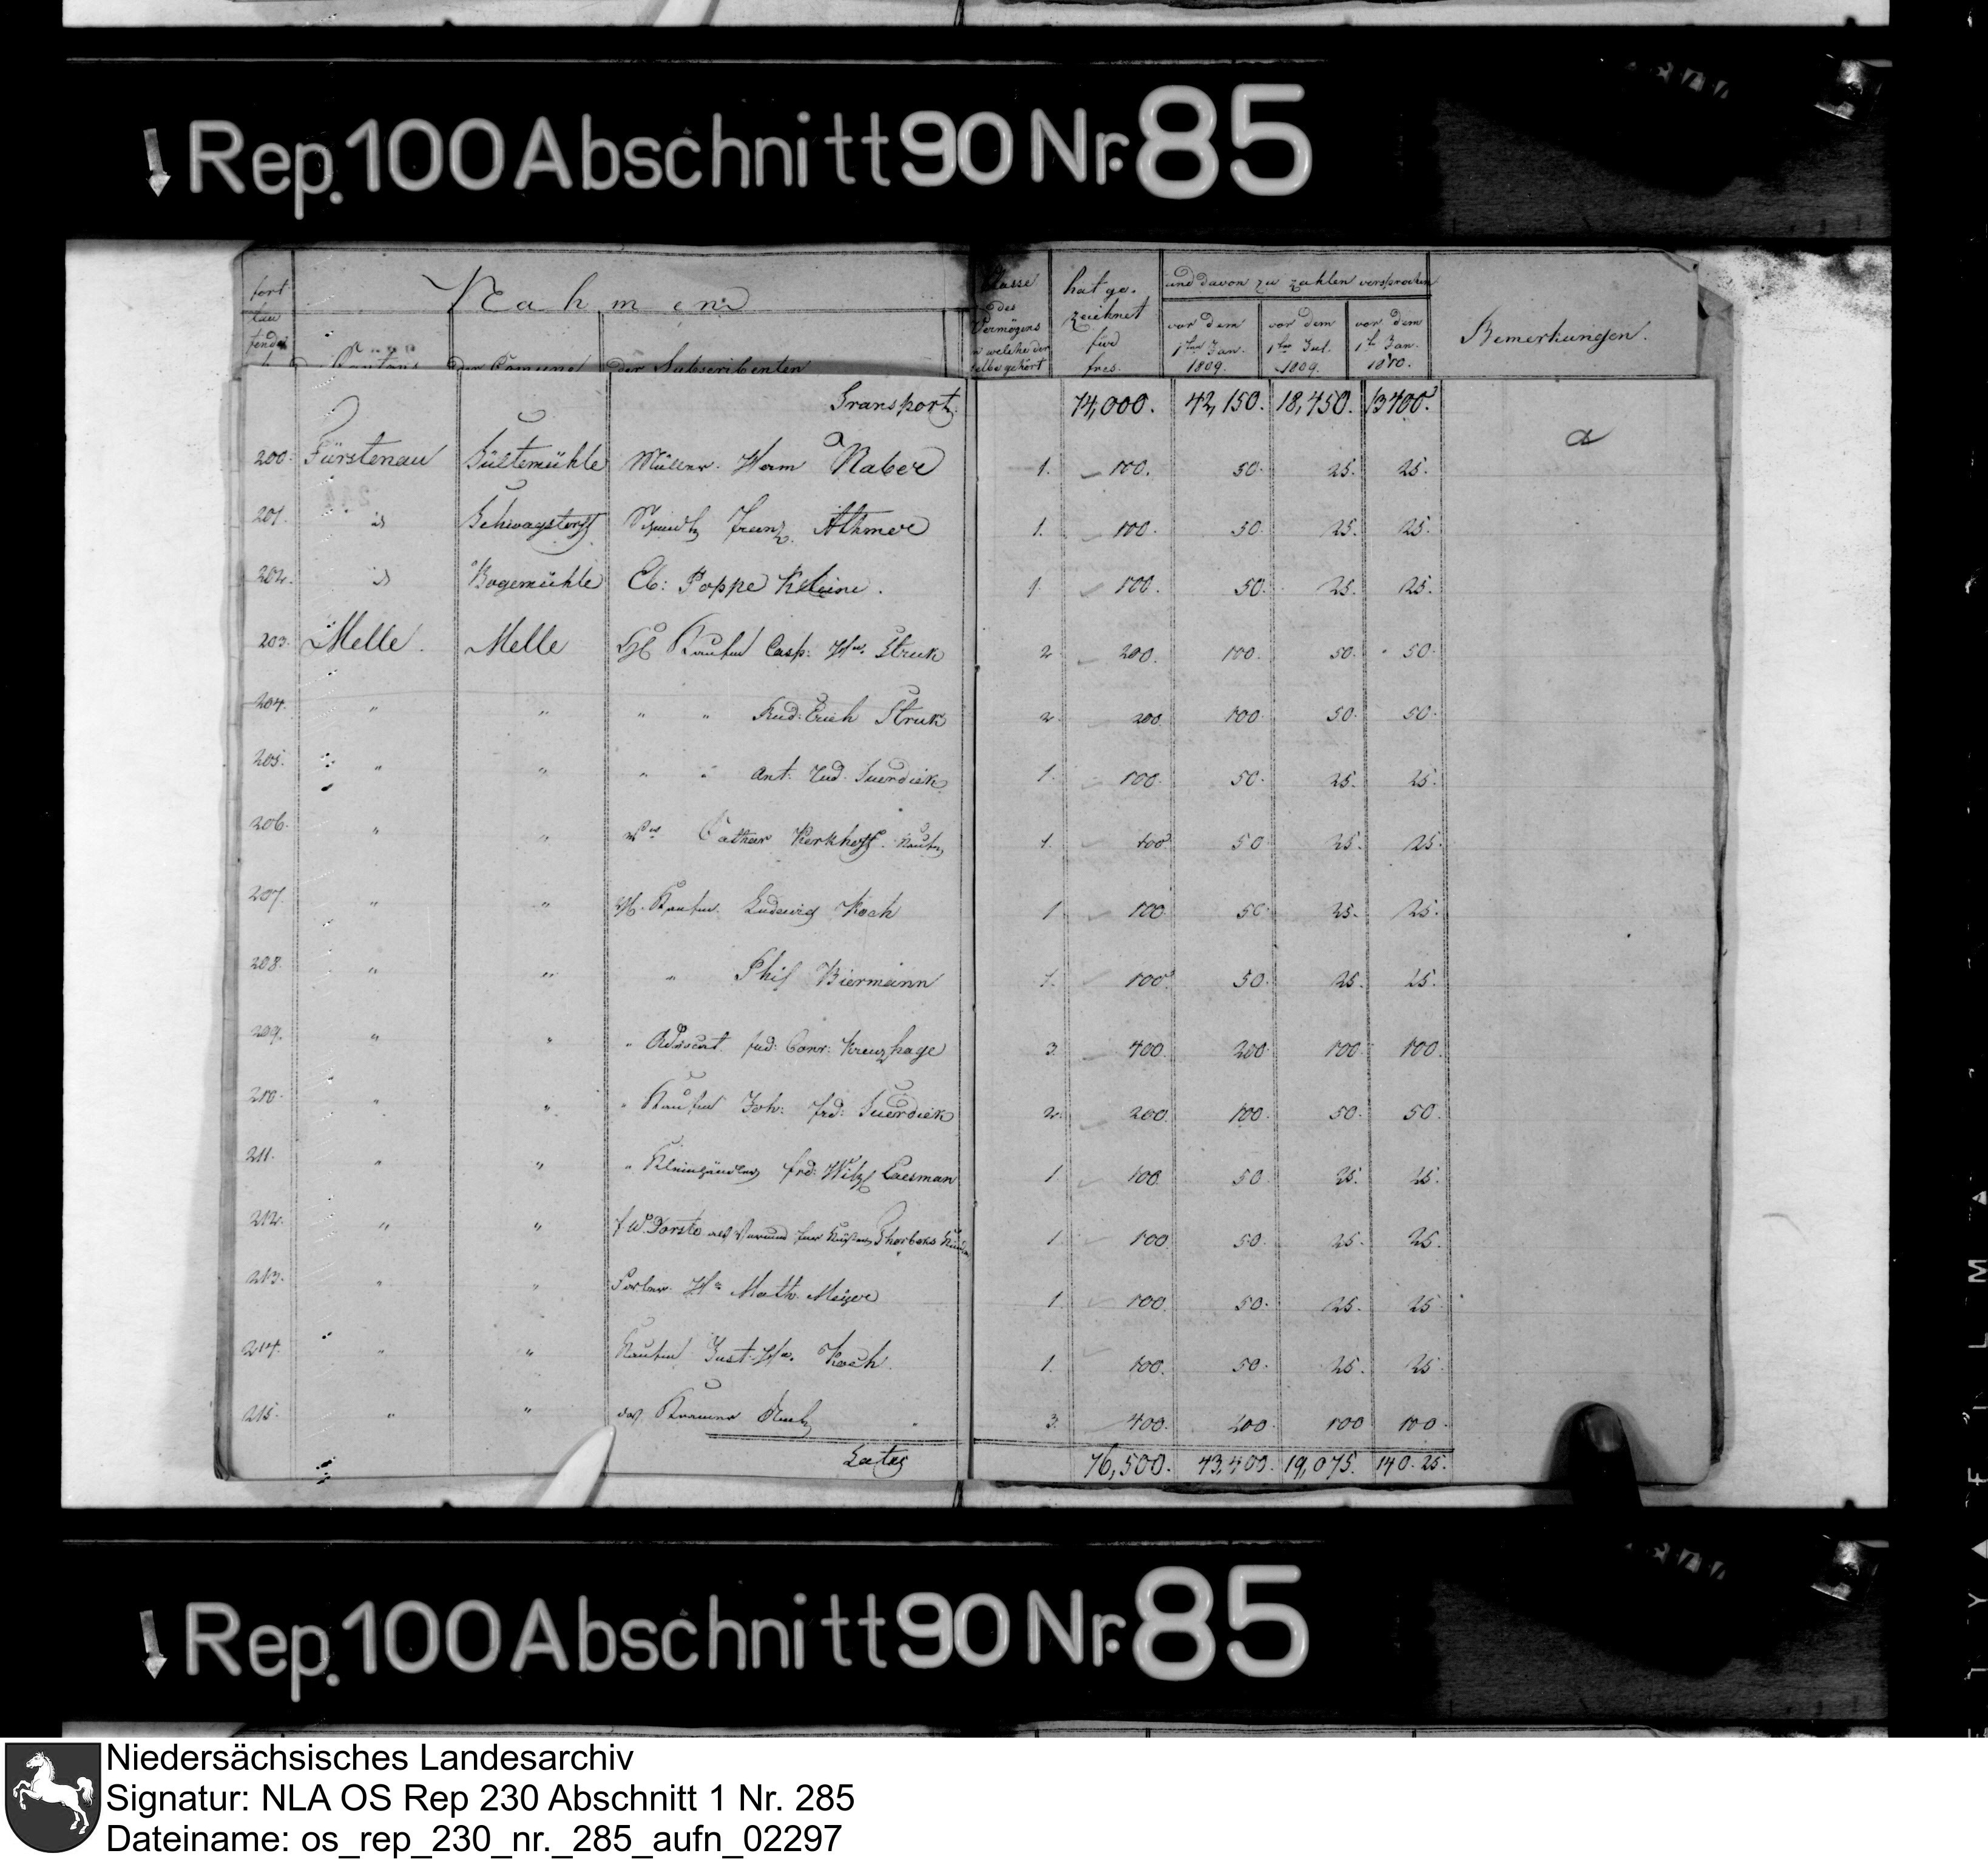 Rep. 100 Abschnitt 90 Nr. 85
fort
lau
fende
Nahmen
Classe
des
Vermögens
welche der
selbe gehört
hat ge-
zeichnet
für
frcs.
und davon zu zahlen versprochen
vor dem
1ten Jan.
1809.
vor dem
1ten Jul.
1809.
vor dem
1ten Jan.
1810.
Bemerkungen.
Cantons der Comune der Subscribenten
Transport 74,000. 42,150. 18,450. 13400.
200. Fürstenau Sültemühle Müller Herm Naber 1. 100. 50. 25. 25.
201. id Schwagstorff Franz Athmer 1. 100. 50. 25. 25.
202. id Bogemühle Cb: Poppe Kleine. 1. 100. 50. 25. 25.
203. Melle. Melle Kaufm Casp: Hr. Struk 2 200. 100. 50. 50.
204. " " " " Rud: Erich Struk 2 200 100. 50. 50.
205. " " " " Ant. Rud. Suerdiek 1. 100. 50. 25. 25.
206. " " Ww Cathar Kerkhoff. Kaufm 1. 100 50 25. 25.
207. " " Kaufm. Ludewig Koch 1 100 50 25. 25.
208. " " " Phil Biermann 1. 100. 50. 25. 25.
209. " " " Advocat frd: Conr: Kreuzhage 3. 400. 200 100 100.
210. " " " Kaufm Joh: frd: Suerdiek 2. 200. 100 50. 50.
211. " " " Kleinhändler frd: Wilh Caesman 1 100 50. 25. 25.
212. " " f W Dorste als Vormund Thorbeks Kinder 1. 100 50. 25. 25.
213. " " Hr Math. Meyer 1. 100. 50. 25. 25
214. " " Kaufm Just. Hr. Koch. 1. 100. 50. 25. 25.
215. " " Kramer 3. 400. 200. 100 100.
Latus 76,500. 43,400. 19,075. 140.25.
Rep. 100 Abschnitt 90 Nr. 85
Niedersächsisches Landesarchiv
Signatur: NLA OS Rep 230 Abschnitt 1 Nr. 285
Dateiname: os_rep_230_nr._285_aufn_02297